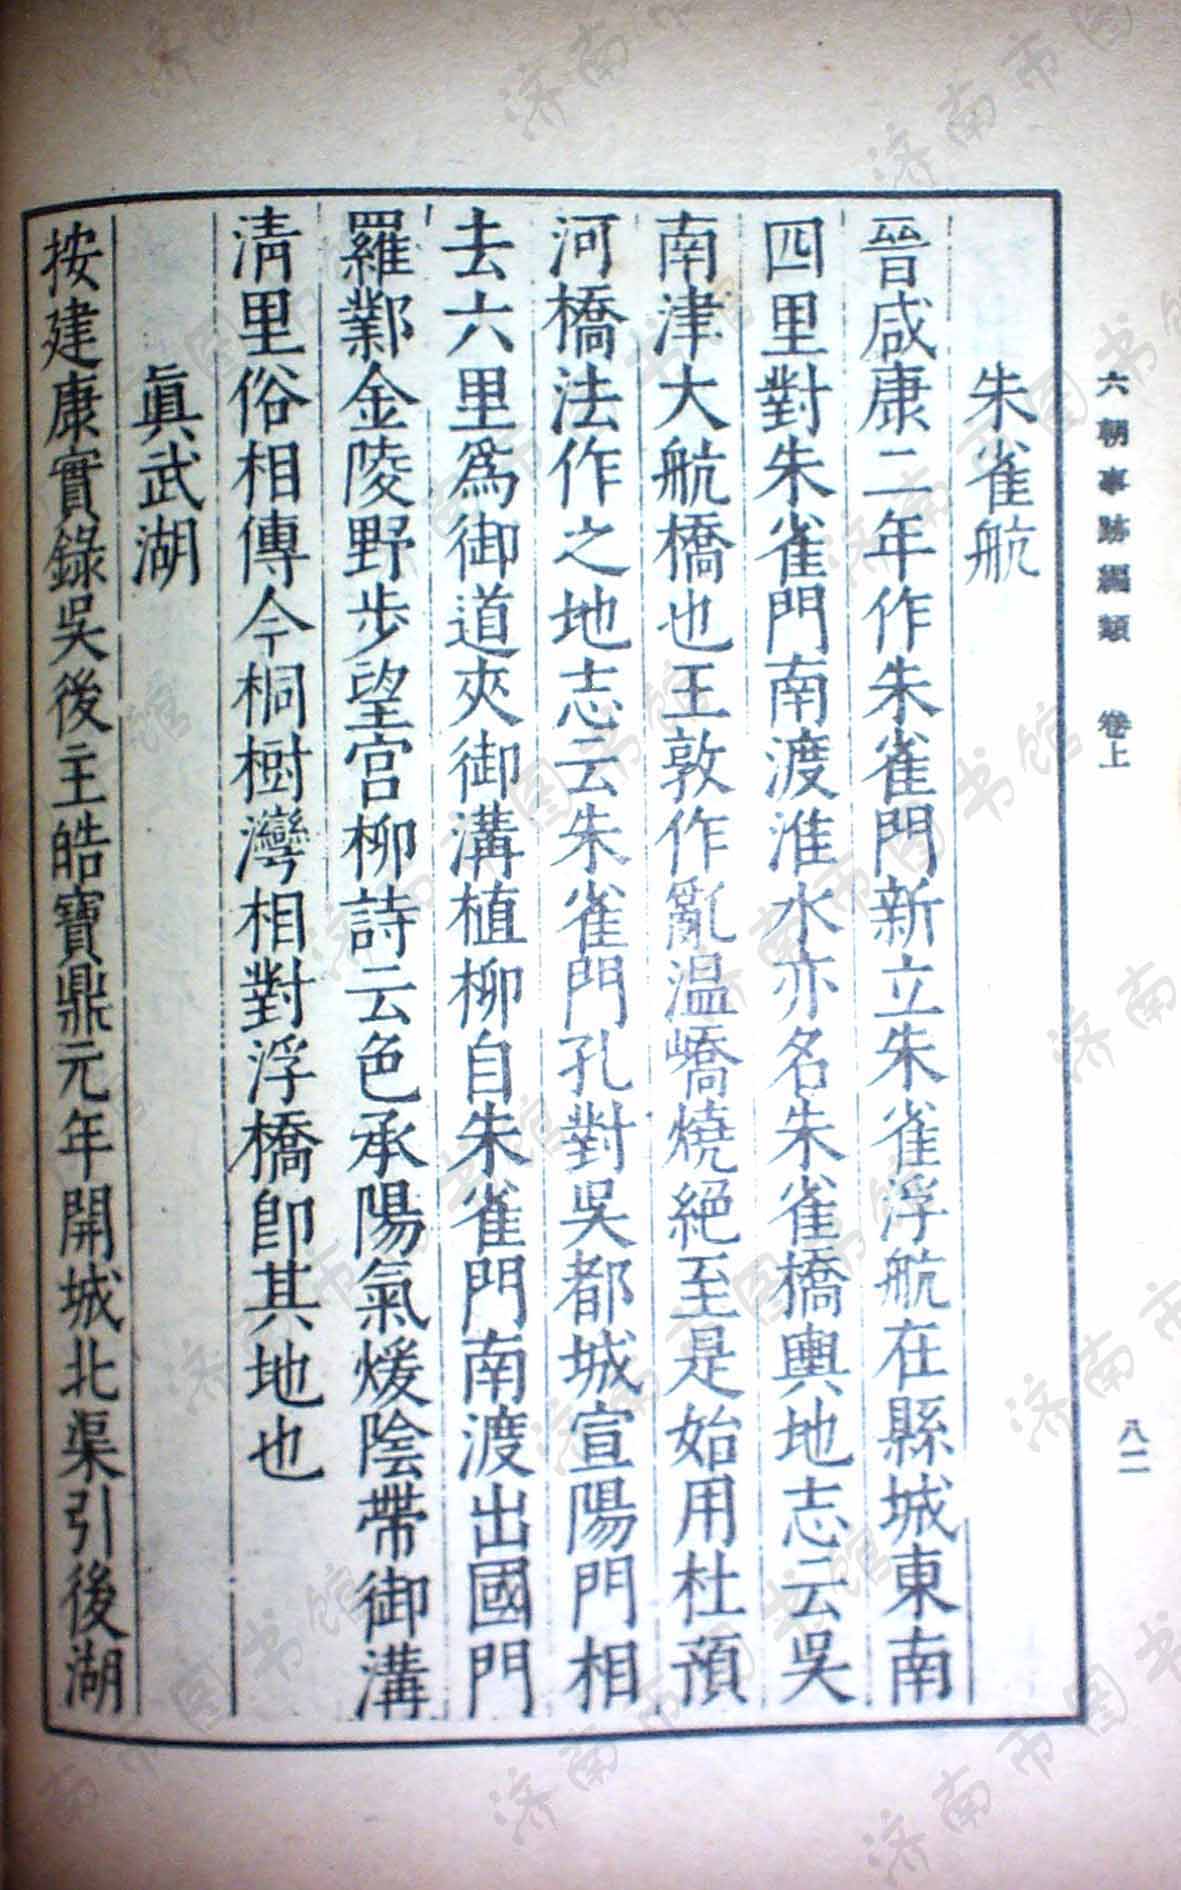 六朝事跡編類 卷上
八二
朱雀航
晉咸康二年作朱雀門新立朱雀浮航在縣城東南
四里對朱雀門南渡淮水亦名朱雀橋輿地志云吳
南津大航橋也王敦作亂温嶠燒絕至是始用杜預
河橋法作之地志云朱雀門孔對吳都城宣陽門相
去六里爲御道夾御溝植柳自朱雀門南渡出國門
羅鄴金陵野步望宮柳詩云色承陽氣煖陰帶御溝
淸里俗相傳今桐樹灣相對浮橋卽其地也
眞武湖
按建康實錄吳後主皓寶鼎元年開城北渠引後湖
济南市图书馆